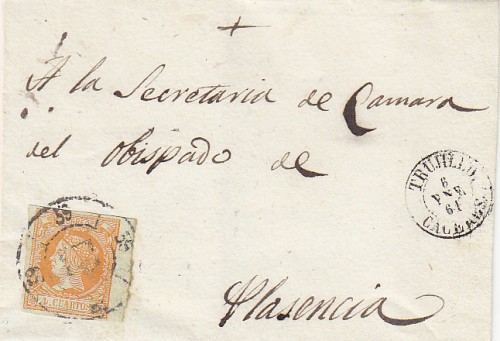 +
A la Secretaria de Camara
del Obispado de
TRUJILLO.
6
ENE
61
CACERES.
39
4 CUARTOS
Plasencia